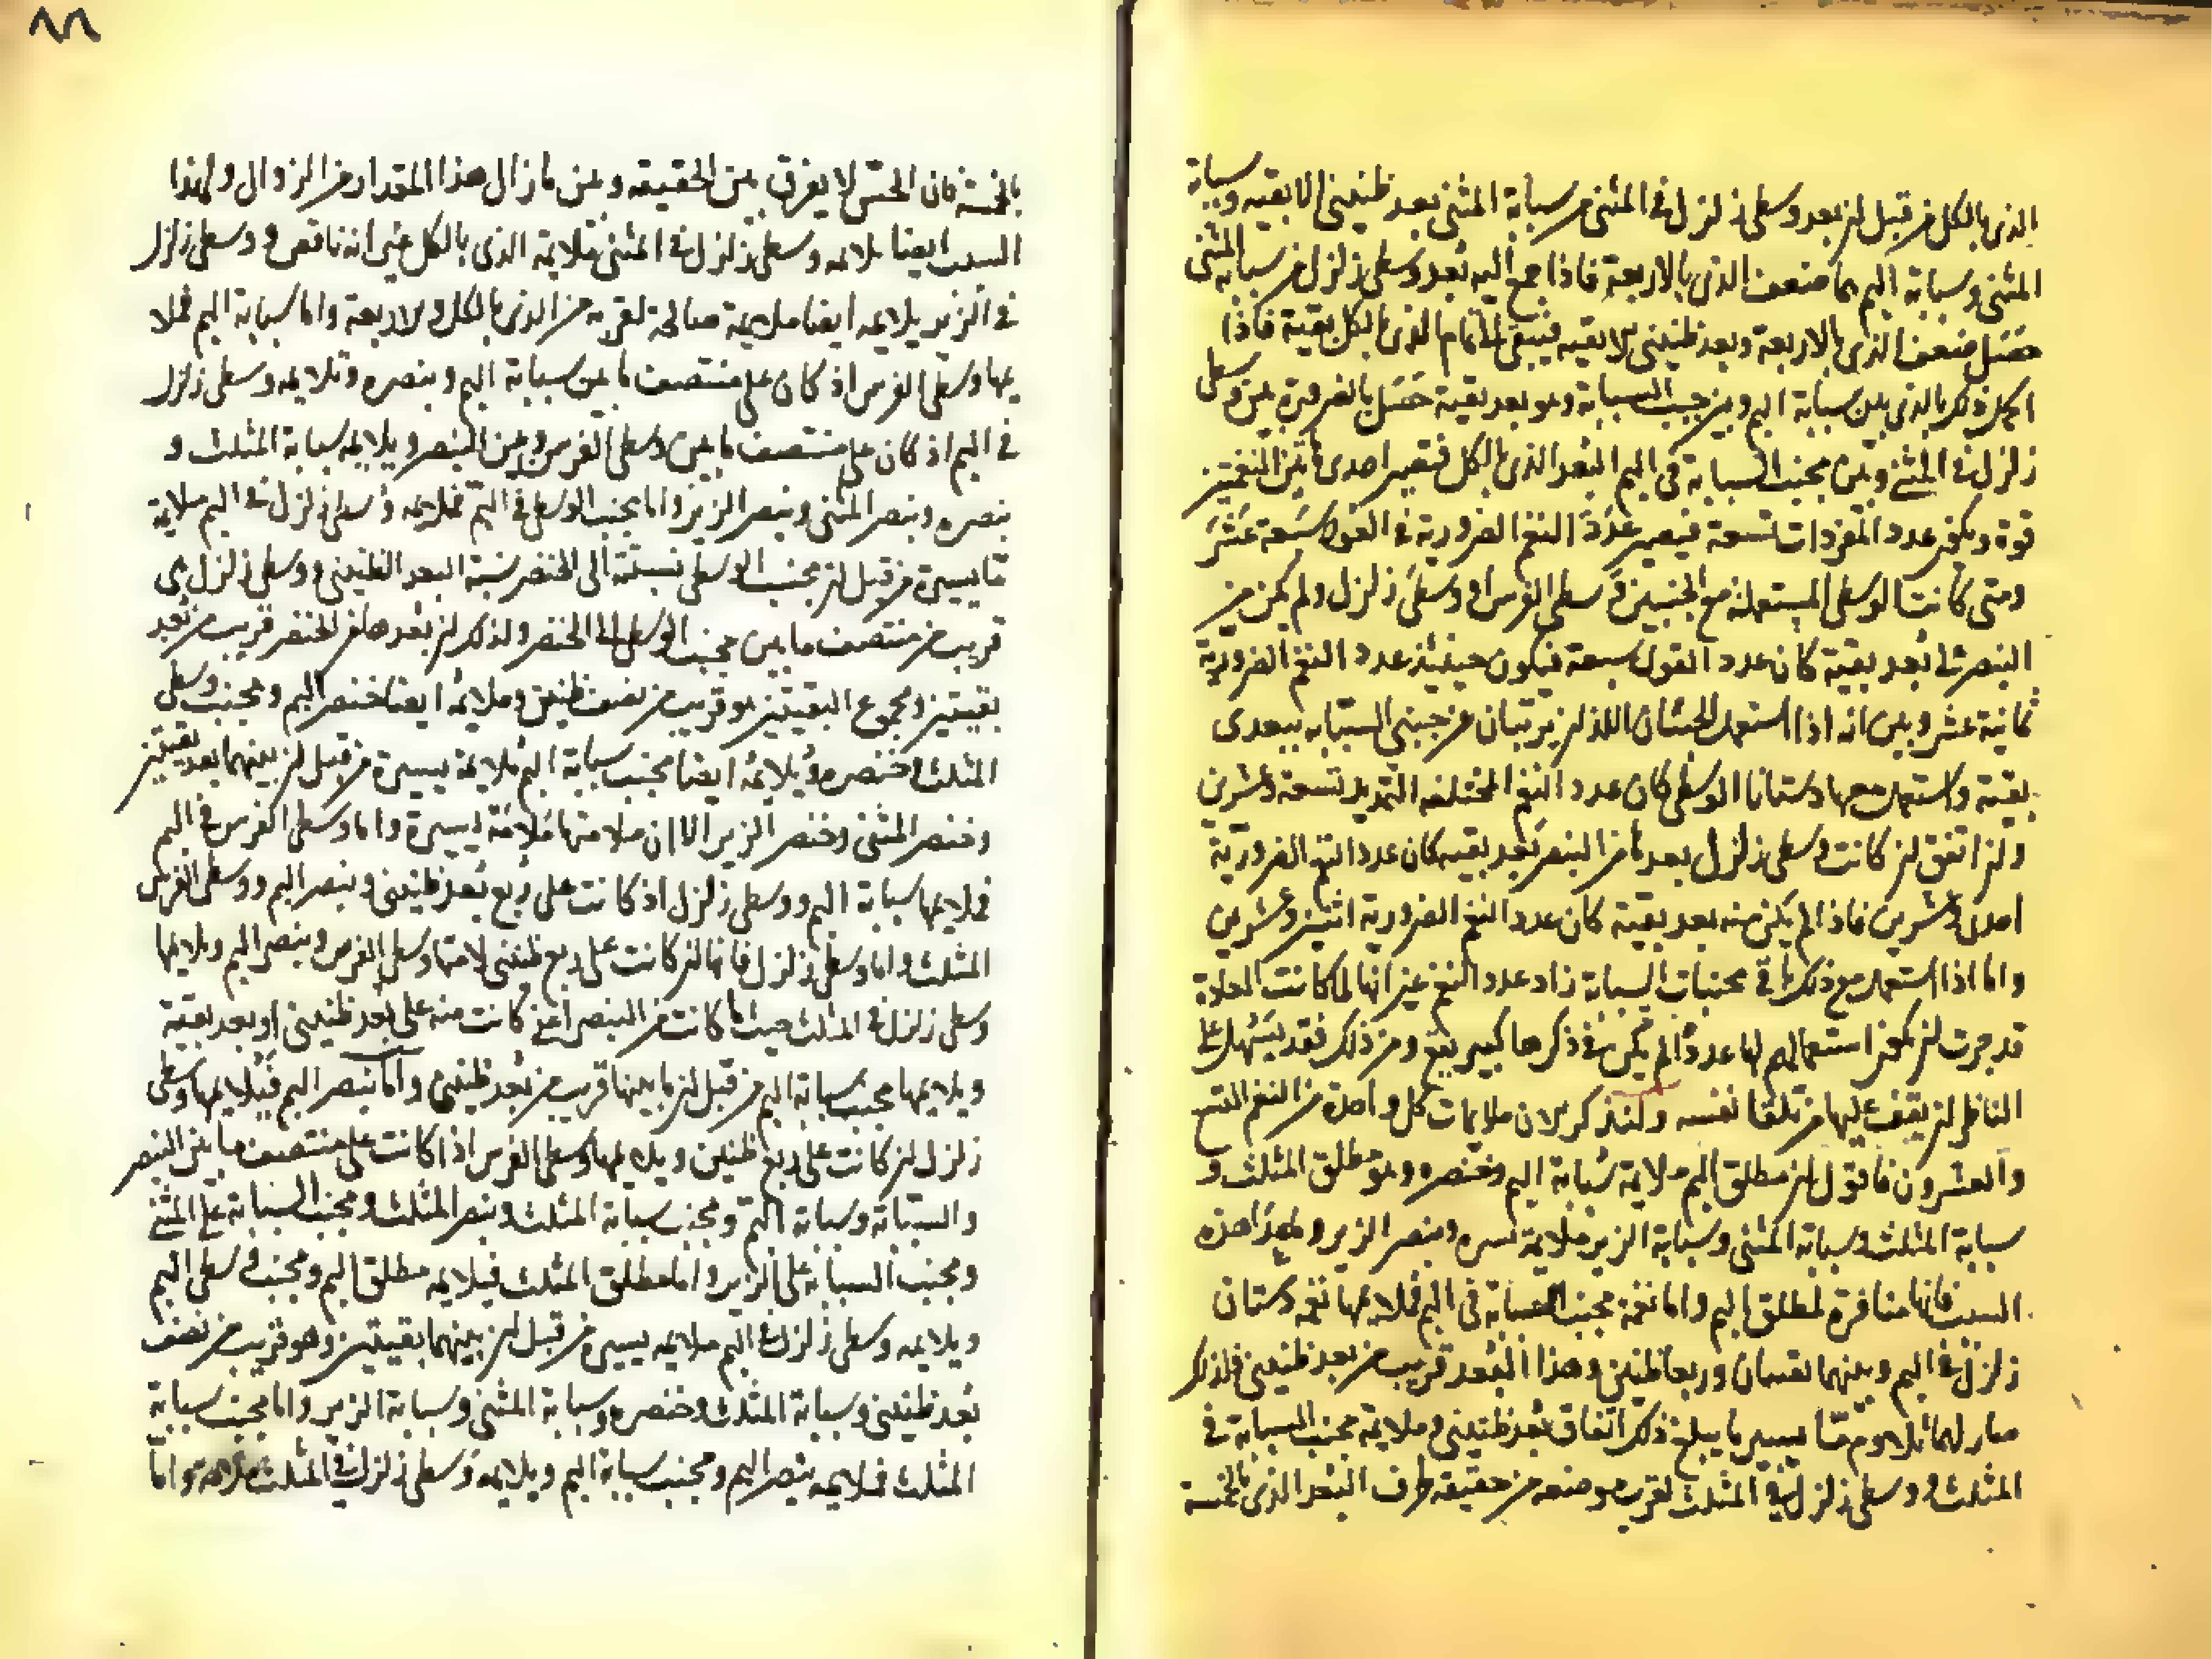 الذى بالكل من قبل ان بعد وسطى زلزل فى المثنى من سبابة المثنى بعد طنينى الا بقيه وسبابة
المثنى وسبابة البم هما ضعف الذى بالاربعة فاذا جمع اليه بعد وسطى زلزل من سبابة المثنى
حصل ضعف الذى بالاربعة وبعد طنينى الا بقيه فيبقى الى تمام الذى بالكل بقية فاذا
اكمل ذلك بالذى بين سبابة البم وبين مجنب السبابة وهو بعد بقية حصل بالضرورة بين وسطى
زلزل فى المثنى وبين مجنب السبابة فى البم البعد الذى بالكل فتصير احدى هاتين النغمتين
قوة ويكون عدد المفردات تسعة فيصير عدد النغم الضرورية فى العود سبعة عشر
ومتى كانت الوسطى المستعملة مع الجنبين وسطى الفرس او وسطى زلزل ولم يكن من
البنصر على بعد بقية كان عدد القوى سبعة فيكون حينئذ عدد النغم الضرورية
ثمانية عشر وبين انه اذا استعمل الدستانان اللذان يرتبان عن جنبى السبابه ببعدى
بقية واستعمل معها دستانا الوسطى كان عدد النغم المختلفه التمديد تسعة وعشرين
وان اتفق ان كانت وسطى زلزل بعدها من البنصر بعد بقيه كان عدد النغم الضرورية
احدى وعشرين فاذا لم يكن منه بعد بقية كان عدد النغم الضرورية اثنين وعشرين
واما اذا استعمل مع ذلك باقى مجنبات السبابة زاد عدد النغم غير انها لما كانت العادة
قد جرت ان يكون استعمالهم لها عددا لم يكن فى ذكرها كبير نفع ومن ذلك فقد يسهل على
الناظر ان يقف عليها من تلقا نفسه ولنذكر الان ملايمات كل واحدة من النغم التسع
والعشرون فاقول ان مطلق البم ملايمة سبابة البم وخنصره وهو مطلق المثلث و
سبابة المثلث وسبابة المثنى وسبابة الزير ملايمة وبنصر الزير ولبعد هذه
السبب فانها منافرة لمطلق البم واما نغمة مجنب السبابة فى البم فملايمها نغمة دستان
زلزل فى البم وبينهما نقصان وربعا طنين وهذا البعد قريب من بعد طنينى فلذلك
صار لهما تلاوم ما يسير ما يبلغ ذلك اتفاق بعد طنينى وملايمة مجنب السبابة فى
المثلث ووسطى زلزل فى المثلث لقرب موضعه من حقيقة طرف البعد الذى بالخمسة
بالخمسة فان الحس لا يفرق بين الحقيقه وبين ما زال هذا المقدار من الزوال ولهذا
السبب ايضا يلايمه وسطى زلزل فى المثنى ملايمة الذى بالكل غير انه ناقص ووسطى زلزل
فى الزير يلايمه ايضا ملايمة صالحة لقربه من الذى بالكل والاربعة واما سبابة البم فملا
يمها وسطى الفرس اذ كان على منتصف ما بين سبابة البم وبنصره وتلايمه وسطى زلزل
فى البم اذ كان على منتصف ما بين وسطى الفرس وبين البنصر ويلايمه سبابة المثلث و
بنصره وبنصر المثنى وبنصر الزير واما مجنب الوسطى فى البم فملايمه وسطى زلزل فى البم ملايمة
ما يسيرة من قبل ان مجنب الوسطى نسبته الى الخنصر نسبة البعد الطنينى ووسطى زلزل هى
قريب من منتصف ما بين مجنب الوسطى الى الخنصر ولذلك ان بعدها من الخنصر قريب من بعد
بقيتين ومجموع البقيتين هو قريب من نصف طنين وملايمه ايضا خنصر البم ومجنب وسطى
المثلث وخنصره ويلايمه ايضا مجنب سبابة البم ملايمة يسيرة من قبل ان بينهما بعد بقيتين
وخنصر المثنى وخنصر الزير الا ان ملايمتها ملايمة يسيرة واما وسطى الفرس فى البم
فملايمها سبابة البم ووسطى زلزل اذ كانت على ربع بعد طنينى وبنصر البم ووسطى الفرس
المثلث واما وسطى زلزل فانها ان كانت على ربع طنينى لايمتها وسطى الفرس وبنصر البم ويلايمها
وسطى زلزل فى المثلث حيث ما كانت من البنصر اعنى كانت منه على بعد طنينى او بعد بقية
ويلايمها مجنب سبابة البم من قبل ان ما بينها قريب من بعد طنينى واما بنصر البم فيلايمها وسطى
زلزل ان كانت على ربع طنين ويلايمها وسطى الفرس اذا كانت على منتصف ما بين البنصر
والسبابة وسبابة البم ومجنب سبابة المثلث وبنصر المثلث ومجنب السبابة على المثنى
ومجنب السبابة على الزير واما مطلق المثلث فيلايمه مطلق البم ومجنب وسطى البم
ويلايمه وسطى زلزل فى البم ملايمه يسيرة من قبل ان بينهما بقيتين وهو قريب من نصف
بعد طنينى وسبابة المثلث وخنصره وسبابة المثنى وسبابة الزير واما مجنب سبابة
المثلث فلايمه بنصر البم ومجنب سبابة البم ويلايمه وسطى زلزل فى المثلث واما